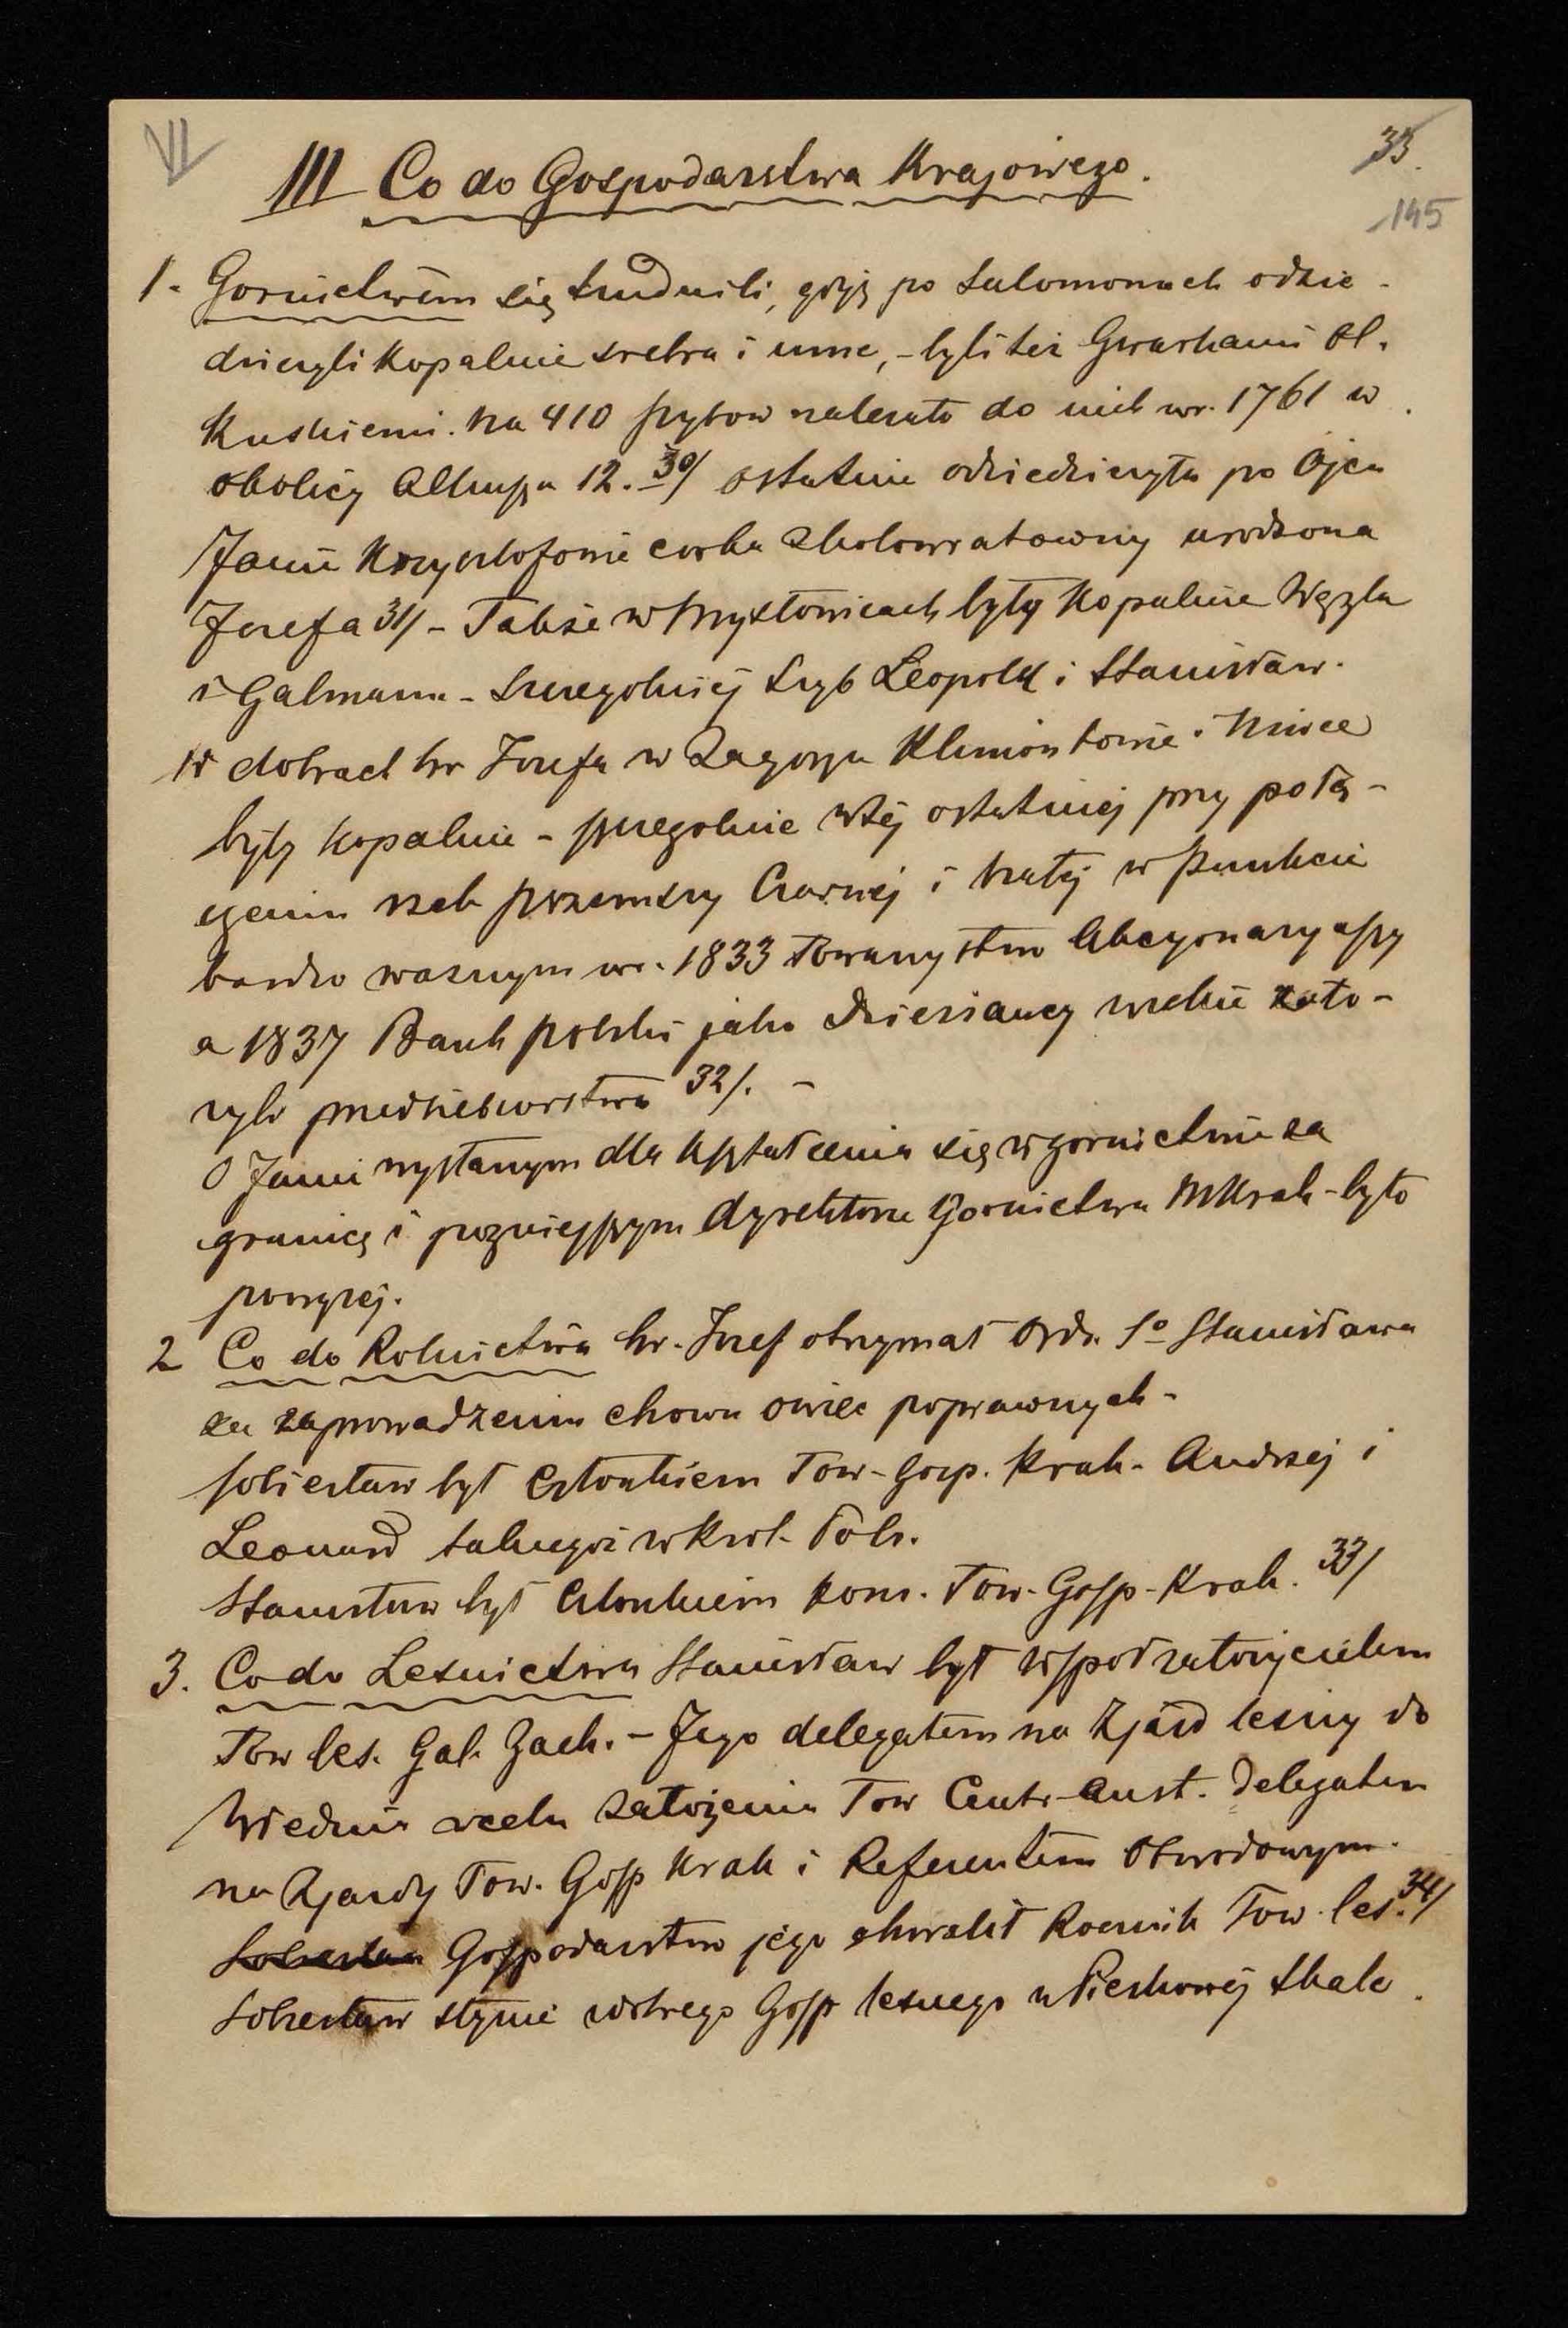 VI
33.
145
III Co do Gospodarstwa Krajowego.
1. Gornictwem się trudnili, gdyż po Salomonach odzie-
dziczyli kopalnie srebra i inne, - byli też Gwarkami Ol.
kuskiemi. Na 410 szybow nalezało do nich w r. 1761 w
okolicy Olkusza 12. 30/ ostatnie odziedziczyła po Ojcu
Janie Krzysztofonie corka Zkolowratowny urodzona
Jozefa 31/ - Takze w Mysłowicach były Kopalnie Węgla
i Galmanu - szczegolniej szyb Leopold i Stanisław.
W dobrach hr Jozefa w Zagorzu Klimontowie i Niwce
były kopalnie - szczegolnie w tej ostatniej przy połą-
czeniu rzek przemszy Czarnej i białej w punkcie
bardzo waznym w r. 1833 Towarzystwo Akcyonaryuszy
a 1837 Bank polski jako dzierzawcy wielkie zało-
zyli przedsiebiorstwa 32/. -
O Janie wysłanym dla kształcenia się w gornictwie za
granicę i pozniejszym dyrektorze Gornictwa WKrak - było
powyzej.
2 Co do Rolnictwa hr. Jozef otrzymał Ord. So Stanisława
za zaprowadzenie chowu owiec poprawnych -
Sobiesław był Członkiem Tow - Gosp. Krak - Andrzej i
Leonard takiegoż w Krol - Pols.
Stanisław był Członkiem kom. Tow - Gosp - Krak. 33/
3. Co do Lesnictwa Stanisław był współzałożycielem
Tow les. Gal. Zach. - Jego delegatem na Zjazd lesny do
Wiednia w celu założenia Tow Centr - Aust. delegatem
na Zjazdy Tow. Gosp Krak i Referentem Obwodowym.
Sobiesław Gospodarstwo jego chwalił Rocznik Tow. les. 34/
Sobiesław słynie z dobrego Gosp lesnego w Pieskowej Skale.